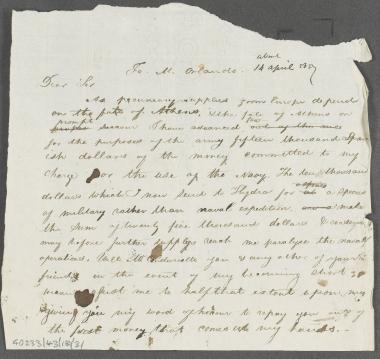 To M. Orlando.
about
14 april 1827
Dear Sir
As pecuniary supplies from Europe depend
on the fate of Athens, & the fate of Athens on
prompt succour I have advanced
for the purposes of the army fifteen thousand Span
ish dollars of the money committed to my
Charge for the use of the Navy. The ten thousand
dollars which I now send to Hydra for a
of military rather than naval expedition, make
the sum of twenty five thousand dollars &
may before further supplys reach me paralyse the naval
operations. Will you & any other of your
friends in the event of my becoming short of
money assist me to half that extent upon my
giving you my word of honor to repay you out of
the first money that comes into my hands.
GD233/43/18/31